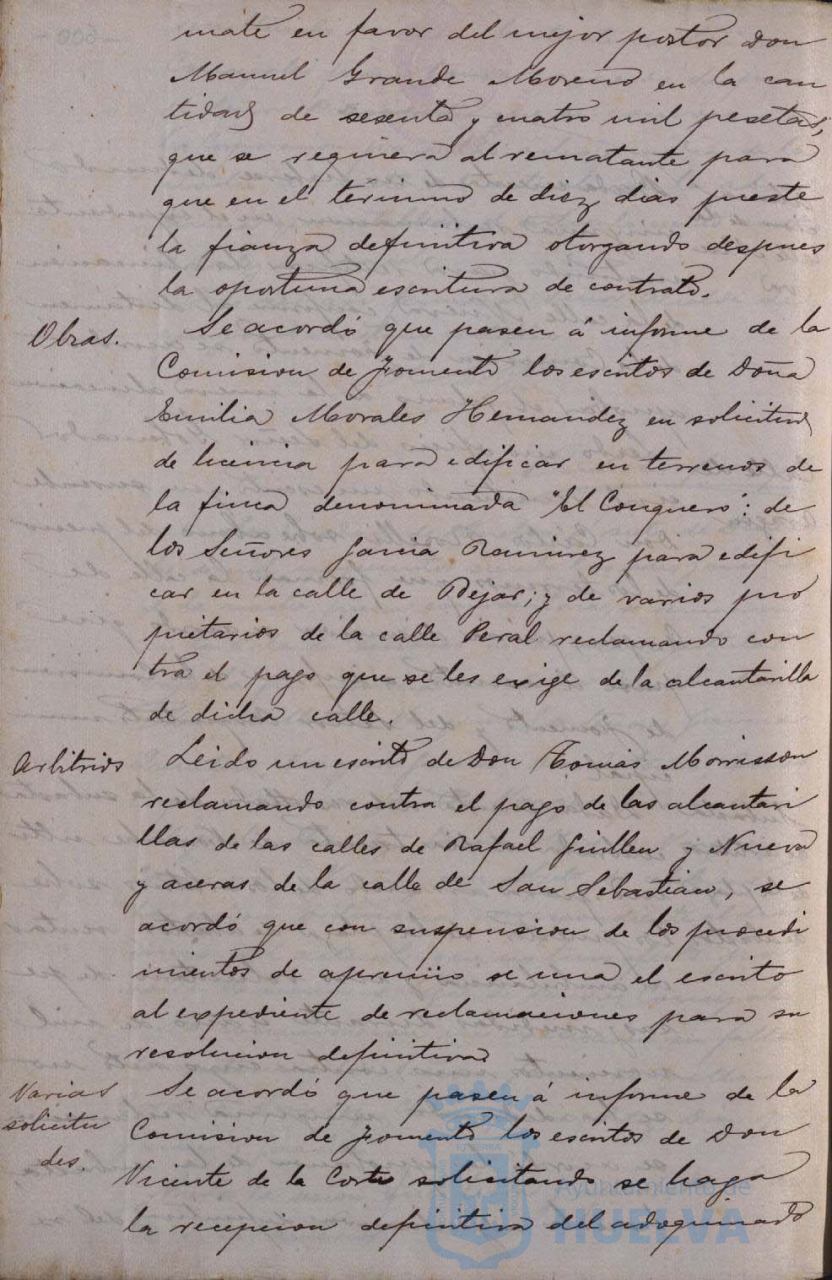 mate en favor del mejor postor Don
Manuel Grande Moreno en la can
tidad de sesenta y cuatro mil pesetas,
que se requiera al rematante para
que en el término de diez dias preste
la fianza definitiva otorgando despues
la oportuna escritura de contrato.
Obras.
Se acordó que pasen á informe de la
Comision de Fomento los escritos de Doña
Emilia Morales Hernandez en solicitud
de licencia para edificar en terrenos de
la finca denominada "El Conquero": de
los Señores Garcia Ramirez para edifi
car en la calle de Bejar; y de varios pro
pietarios de la calle Peral reclamando con
tra el pago que se les exige de la alcantarilla
de dicha calle.
Arbitrios
Leido un escrito de Don Tomás Morrisson
reclamando contra el pago de las alcantari
llas de las calles de Rafael Guillen y Nueva
y aceras de la calle de San Sebastian, se
acordó que con suspension de los procedi
mientos de apremio se una el escrito
al expediente de reclamaciones para su
resolucion definitiva
Varias
solicitu
des.
Se acordó que pasen á informe de la
Comision de Fomento los escritos de Don
Vicente de la Corte solicitando se haga
la recepcion definitiva del adoquinado
Ayuntamiento de
HUELVA